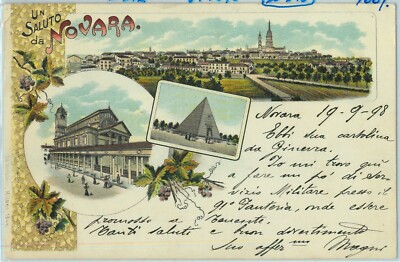 UN
SALUTO
da
NOVARA.
Novara 19-9-98
Ebbi sua cartolina
da Ginevra.
Io mi trovo quì
a fare un po' di ser-
vizio Militare presso il
91° Fanteria, onde essere
promosso a Tenente.
Tanti saluti e buon divertimento
Suo affez mo Magni